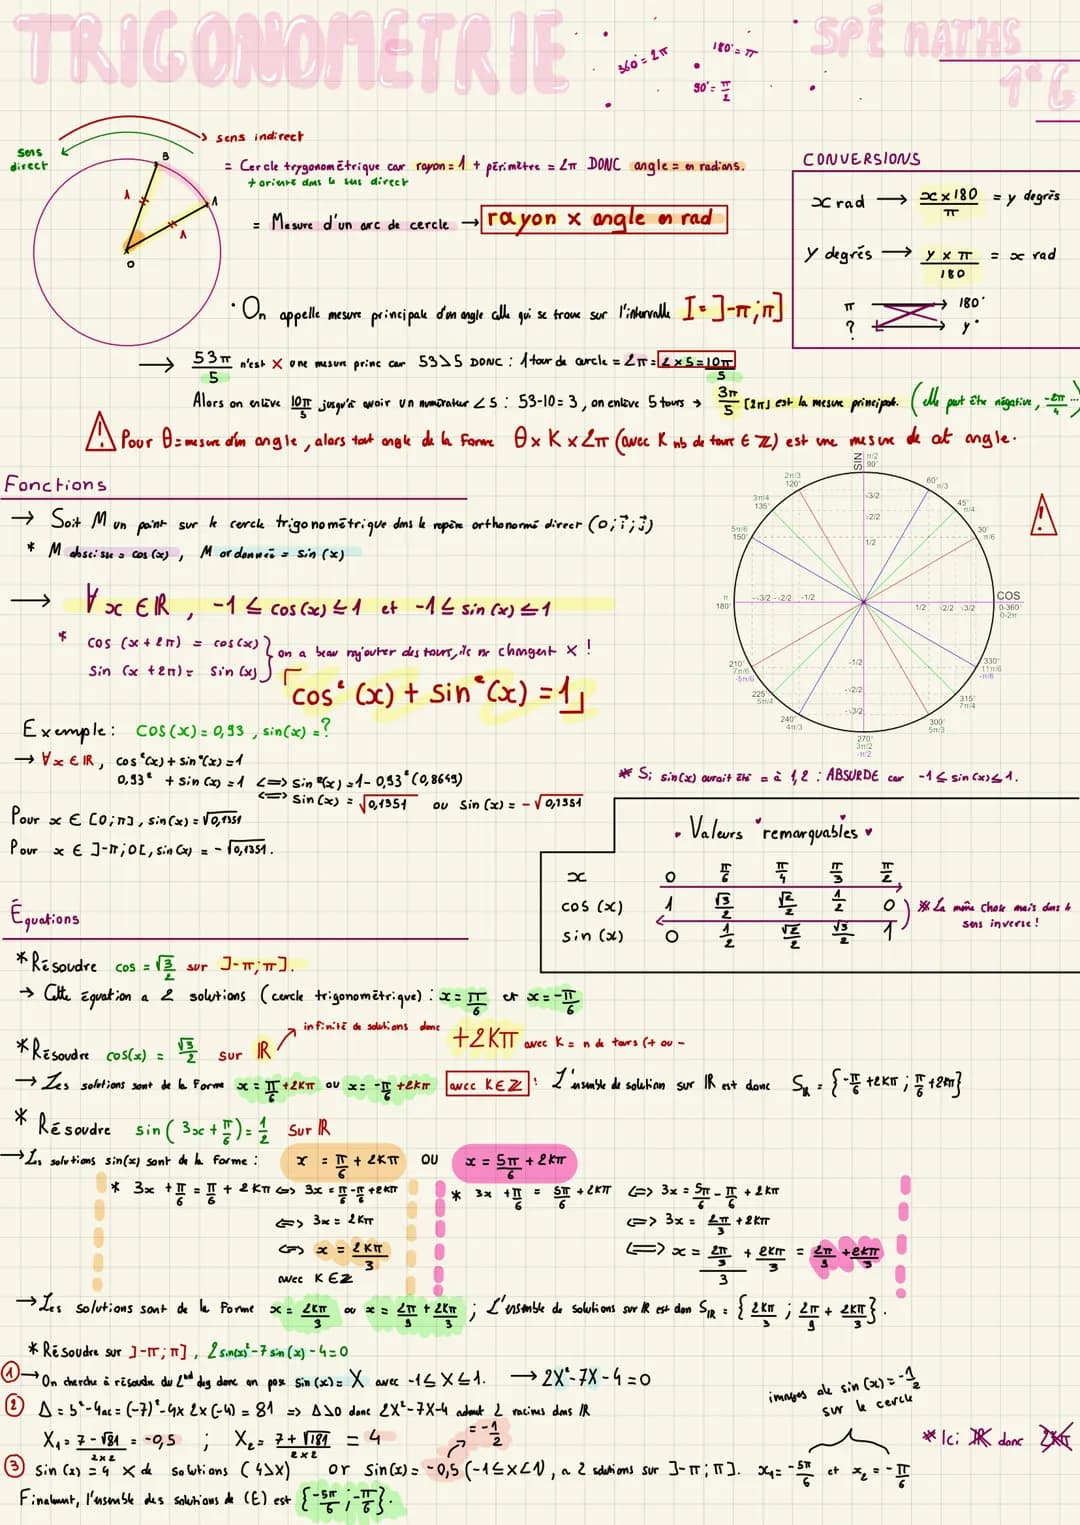 TRIGONOMETRIE
360° = 2π
180° = π
90° = π/2
SPÉ MATHS
1°G
sens direct
sens indirect
= Cercle trygonométrique car rayon = 1 + périmètre = 2π DONC angle = en radians.
+ oriente dans le sens direct
= Mesure d'un arc de cercle → rayon x angle en rad
CONVERSIONS
x rad → x x 180 / π = y degrés
y degrés → y x π / 180 = x rad
π → 180°
? y°
B
A
1
1
O
· On appelle mesure principale d'un angle celle qui se trouve sur l'intervalle I = ]-π;π]
→ 53π/5 n'est X une mesure princ car 53>5 DONC : 1 tour de cercle = 2π = 2x5 = 10π/5
Alors on enlève 10π/5 jusqu'à avoir un numérateur <5 : 53-10= 3, on enlève 5 tours → 3π/5 [2π] est la mesure principale. (elle peut être négative, -2π/4 ...)
! Pour θ = mesure d'un angle, alors tout angle de la forme θ x K x 2π (avec K nb de tours ∈ Z) est une mesure de cet angle.
Fonctions
→ Soit M un point sur le cercle trigonométrique dans le repère orthonormé direct (O;i;j)
* M abscisse = cos(x), M ordonnée = sin(x)
→ ∀x ∈ IR, -1 ≤ cos(x) ≤ 1 et -1 ≤ sin(x) ≤ 1
* cos (x+2π) = cos(x)
sin (x+2π) = sin(x)
on a beau rajouter des tours, ils ne changent X !
cos²(x) + sin²(x) = 1
Exemple : cos(x) = 0,93, sin(x) = ?
→ ∀x ∈ IR, cos²(x) + sin²(x) = 1
0,93² + sin(x) = 1 <=> sin²(x) = 1 - 0,93² (0,8649)
<=> sin(x) = √0,1351 ou sin(x) = -√0,1351
Pour x ∈ [0;π], sin(x) = √0,1351
Pour x ∈ ]-π;0[, sin(x) = -√0,1351.
SIN
π/2
90°
2π/3
120°
60°
π/3
3π/4
135°
45°
π/4
5π/6
150°
30°
π/6
√3/2
√2/2
1/2
π
180°
-√3/2 -√2/2 -1/2
1/2 √2/2 √3/2
COS
0-360°
0-2π
210°
7π/6
-5π/6
330°
11π/6
-π/6
-1/2
-√2/2
-√3/2
225°
5π/4
315°
7π/4
240°
4π/3
300°
5π/3
270°
3π/2
-π/2
!
* Si sin(x) aurait été = à 1,2 : ABSURDE car -1 ≤ sin(x) ≤ 1.
• Valeurs "remarquables ♥
x 0 π/6 π/4 π/3 π/2
cos (x) 1 √3/2 √2/2 1/2 0
sin (x) 0 1/2 √2/2 √3/2 1
* La même chose mais dans le sens inverse !
Équations
* Résoudre cos = √3/2 sur ]-π;π].
→ Cette équation a 2 solutions (cercle trigonométrique) : x = π/6 et x = -π/6
* Résoudre cos(x) = √3/2 sur IR
infinité de solutions donc +2Kπ avec K = n de tours (+ ou -
→ Les solutions sont de la forme x = π/6 + 2Kπ ou x = -π/6 + 2Kπ avec K∈Z : L'ensemble de solution sur IR est donc S IR = {-π/6 + 2Kπ ; π/6 + 2Kπ}
* Résoudre sin(3x + π/6) = 1/2 sur IR
→ Les solutions sin(x) sont de la forme : x = π/6 + 2Kπ OU x = 5π/6 + 2Kπ
* 3x + π/6 = π/6 + 2Kπ <=> 3x = π/6 - π/6 + 2Kπ
<=> 3x = 2Kπ
<=> x = 2Kπ/3
avec K∈Z
* 3x + π/6 = 5π/6 + 2Kπ <=> 3x = 5π/6 - π/6 + 2Kπ
<=> 3x = 2π/3 + 2Kπ
<=> x = 2π/3 / 3 + 2Kπ/3 = 2π/9 + 2Kπ/3
→ Les solutions sont de la forme x = 2Kπ/3 ou x = 2π/9 + 2Kπ/3 ; L'ensemble de solutions sur IR est don S IR = {2Kπ/3 ; 2π/9 + 2Kπ/3}.
* Résoudre sur ]-π;π], 2sin(x)² - 7sin(x) - 4 = 0
① → On cherche à résoudre du 2nd deg donc on pose sin(x) = X avec -1≤X≤1. → 2X² - 7X - 4 = 0
② Δ = b² - 4ac = (-7)² - 4x2x(-4) = 81 => Δ>0 donc 2X²-7X-4 admet 2 racines dans IR
X₁ = 7 - √81 / 2x2 = -0,5 ; X₂ = 7 + √181 / 2x2 = 4
= -1/2
③ sin(x) = 4 X de solutions (4>X) or sin(x) = -0,5 (-1≤X≤1), a 2 solutions sur ]-π;π]. x₁ = -5π/6 et x₂ = -π/6
images de sin(x) = -1/2 sur le cercle
* Ici IR donc 2Kπ
Finalement, l'ensemble des solutions de (E) est {-5π/6 ; -π/6}.